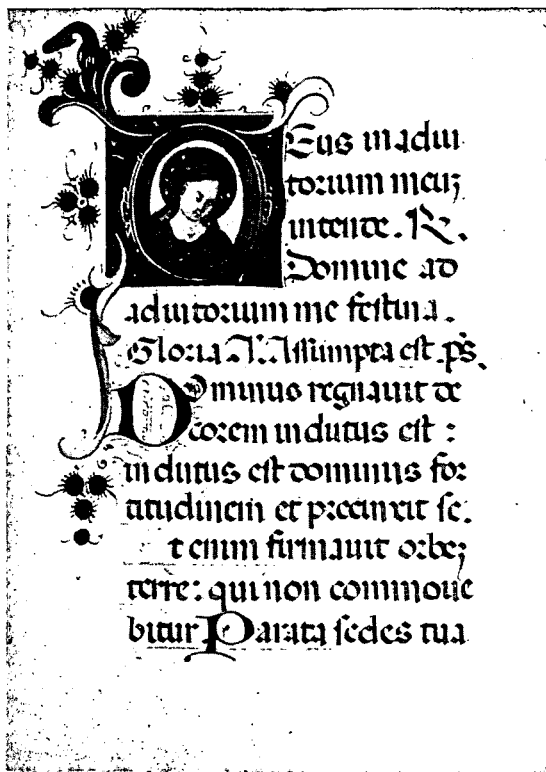 Deus in adiu
torium meuʒ
intende. R.
Domine ad
adiutorium me festina.
Gloria. A. Assumpta est. ps.
Dominus regnauit de
corem indutus est :
indutus est dominus for
titudinem et precinxit se.
t enim firmauit orbeʒ
terre: qui non commoue
bitur Parata sedes tua